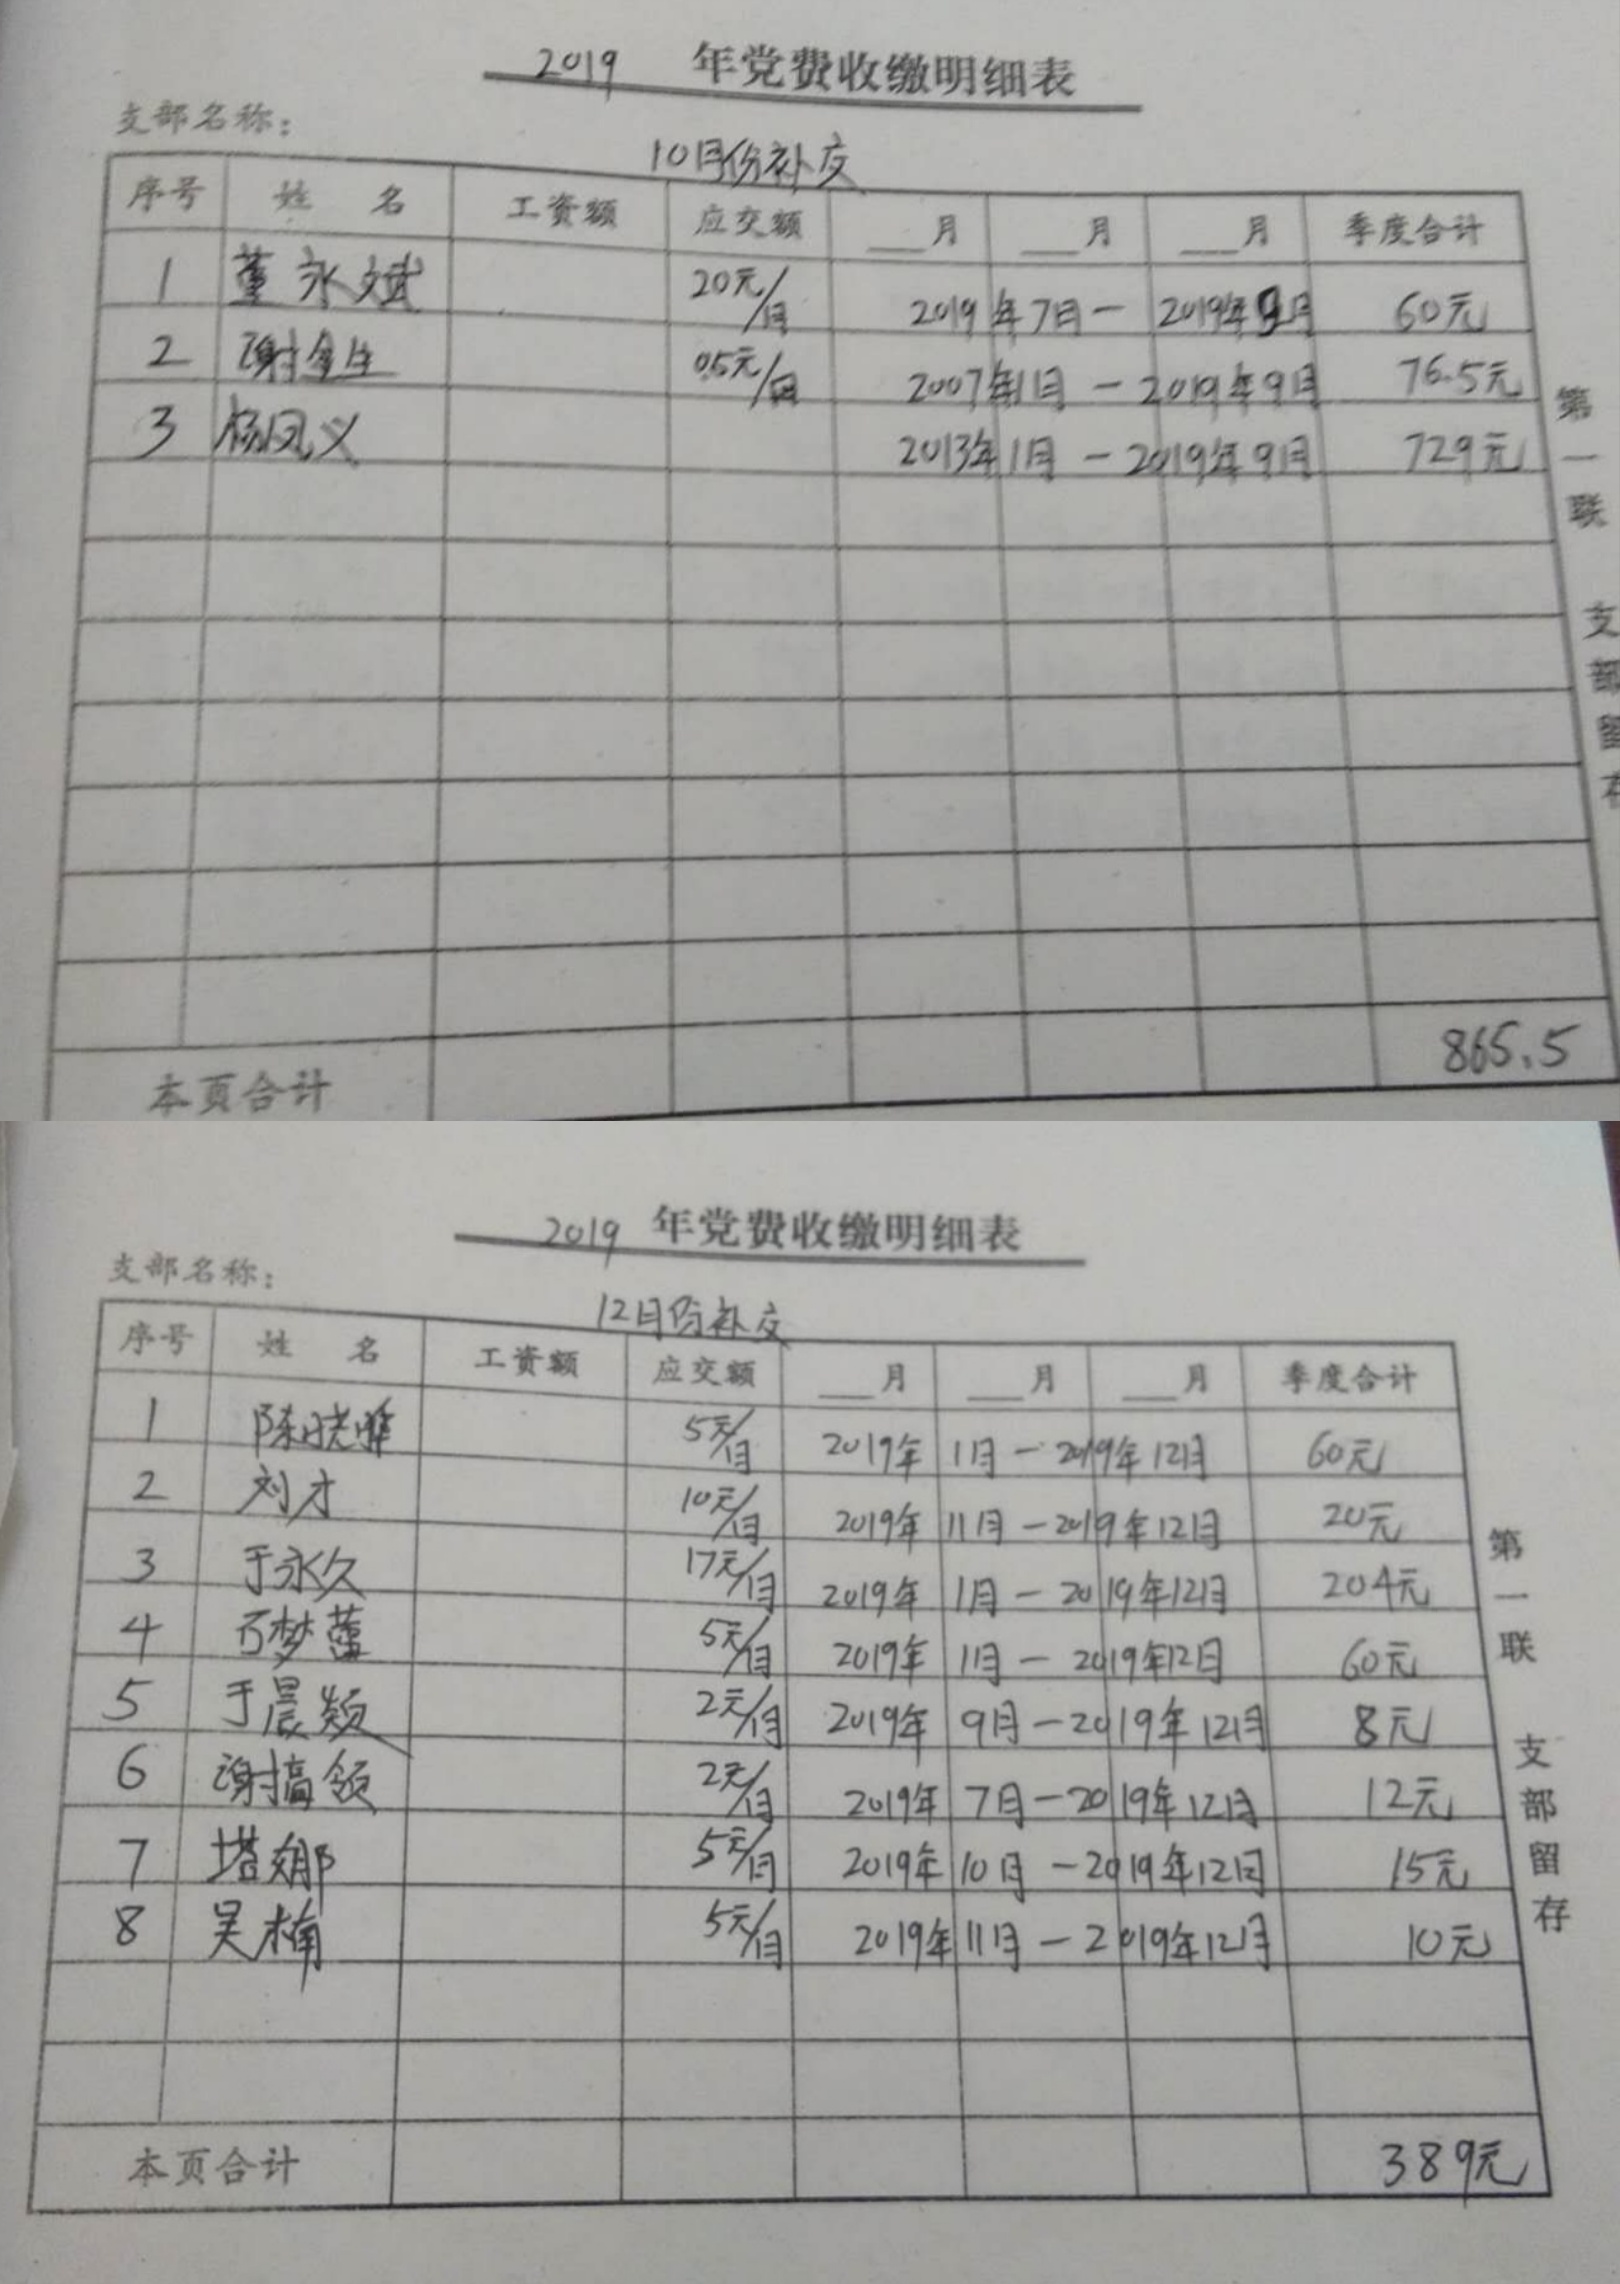 2019 年党费收缴明细表
支部名称：
10月份补交
序号 姓 名 工资额 应交额 ___月 ___月 ___月 季度合计
1 董永斌 20元/月 2019年7月－2019年9月 60元
2 谢金生 0.5元/月 2007年1月－2019年9月 76.5元
3 杨凤义 2013年1月－2019年9月 729元
本页合计 865.5
第一联 支部留存
2019 年党费收缴明细表
支部名称：
12月份补交
序号 姓 名 工资额 应交额 ___月 ___月 ___月 季度合计
1 陈晓雅 5元/月 2019年1月－2019年12月 60元
2 刘才 10元/月 2019年11月－2019年12月 20元
3 于永久 17元/月 2019年1月－2019年12月 204元
4 梦蕾 5元/月 2019年1月－2019年12月 60元
5 于晨 2元/月 2019年9月－2019年12月 8元
6 谢 2元/月 2019年7月－2019年12月 12元
7 塔娜 5元/月 2019年10月－2019年12月 15元
8 吴楠 5元/月 2019年11月－2019年12月 10元
本页合计 389元
第一联 支部留存